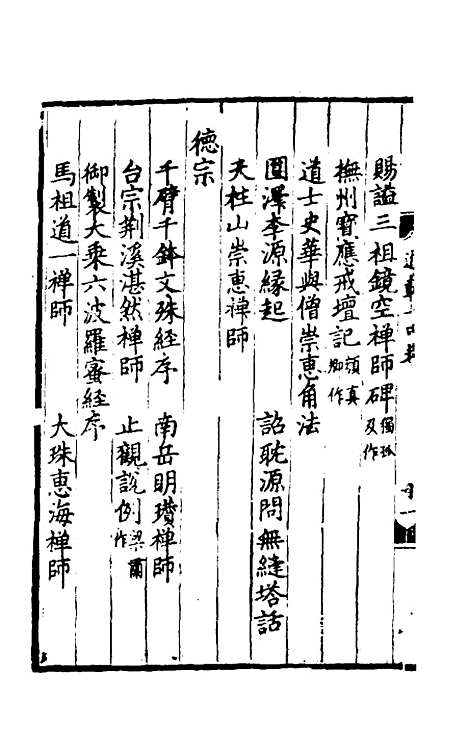 賜謚三祖鏡空禅師碑 獨孤及作
撫州寶應戒壇記 顔真卿作
道士史華與僧崇惠角法
圓澤李源縁起 詔耽源問無縫塔話
天柱山崇惠禅師
德宗
千臂千鉢文殊經序 南岳明瓚禅師
台宗荆溪湛然禅師 止觀説例 梁肅作
御製大乗六波羅蜜經序
馬祖道一禅師 大珠惠海禅師